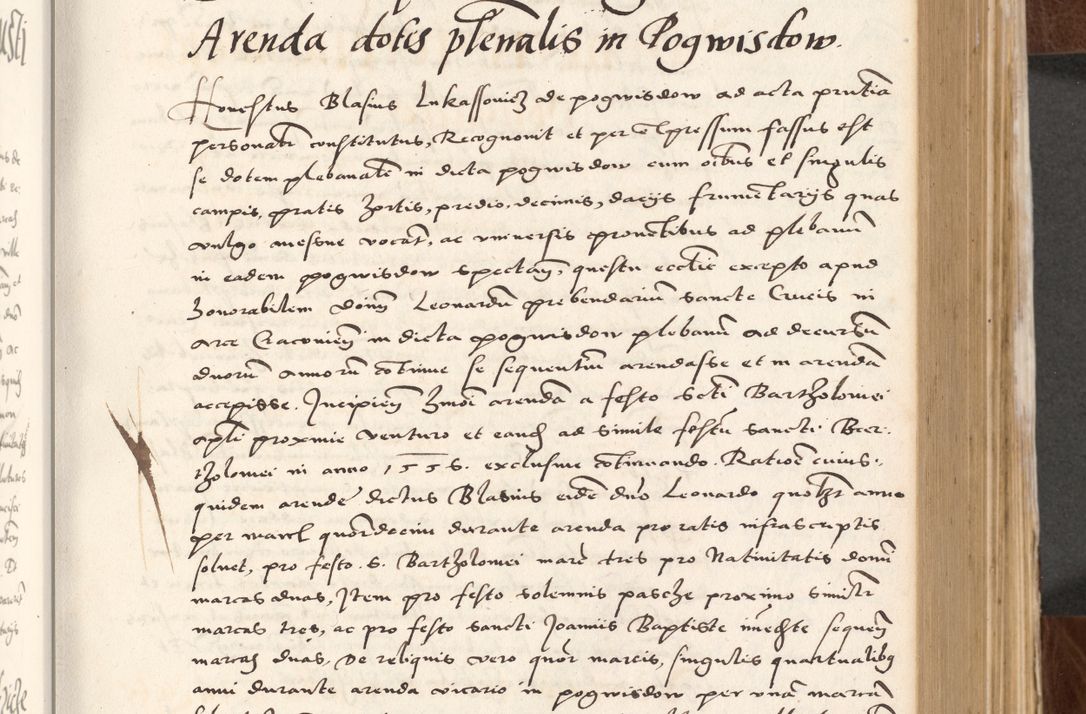 Arenda dotis plenalis in Pogwisdow.
Honestus Blasius Lukassowicz de pogwisdow ad acta pñtia
personalr constitutus, Recognovit et per expressum fassus est
se dotem plebanalē in dicta pogwisdow cum oībus et singulis
campis, pratis hortis, predio, decimis, dacijs frumētarijs quas
vulgo messne vocāt, ac universis provētibus ad plebanū
in eadem pogwisdow spectan, questu ecclie excepto apud
honorabilem domin Leonardū prebendariū sancte Crucis in
arce Cracovien in dicta pogwisdow plebanū ad decursū
duorū annorū cōtinue se sequentiū arendasse et in arendā
accepisse. Incipien hmōi arendā a festo scti Bartholomei
apli proxime venturo et eandē ad simile festū sancti Bar-
tholomei in anno 1556. exclusive cōtinuando. Ratiōe cuius-
quidem arende dictus Blasius eidē dño Leonardo quolzt anno
per marcl quordecim durante arenda pro ratis infrascriptis
solvet, pro festo. S. Bartholomei marc tres pro Nativitatis domī
marcas duas, Item pro festo solemnis pasche proximo similr
marcas tres, ac pro festo sancti Joannis Baptiste īmedte sequen
marcas duas, De reliquis vero quor marcis, singulis quartualibq
anni durante arenda vicario in pogwisdow per unā marcā